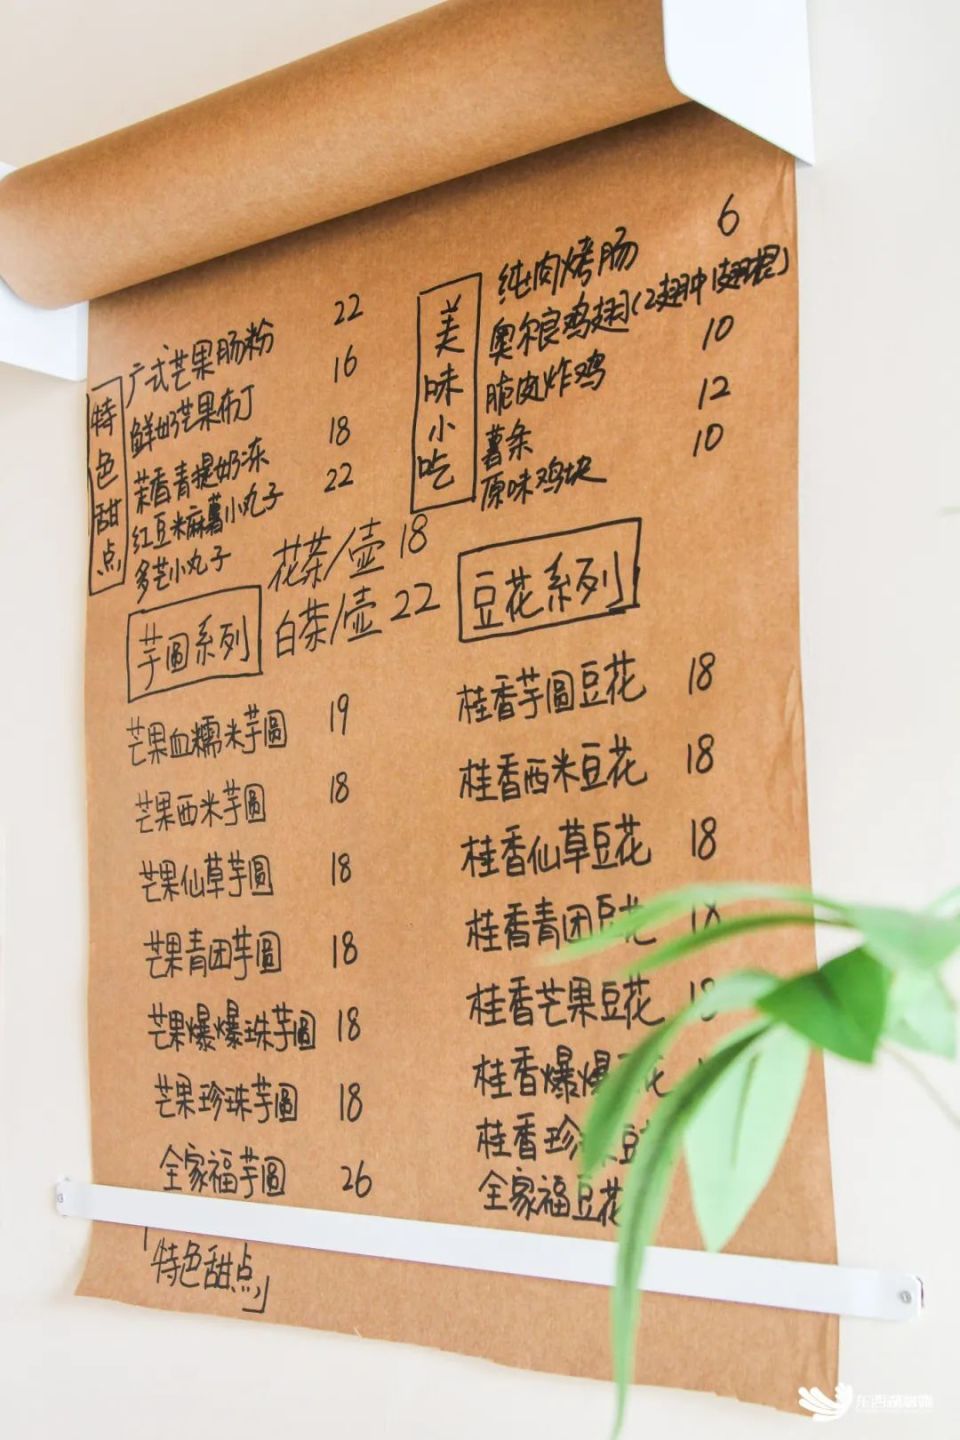 特色甜点
广式芒果肠粉 22
鲜奶芒果布丁 16
茉香青提奶冻 18
红豆米麻薯小丸子 22
多芒小丸子
美味小吃
纯肉烤肠 6
奥尔良鸡翅(2翅中1翅根)
脆皮炸鸡 10
薯条 12
原味鸡块 10
花茶/壶 18
白茶/壶 22
芋圆系列
芒果血糯米芋圆 19
芒果西米芋圆 18
芒果仙草芋圆 18
芒果青团芋圆 18
芒果爆爆珠芋圆 18
芒果珍珠芋圆 18
全家福芋圆 26
豆花系列
桂香芋圆豆花 18
桂香西米豆花 18
桂香仙草豆花 18
桂香青团豆花 18
桂香芒果豆花 18
桂香爆爆 花
桂香珍 豆
全家福豆花
「特色甜点」